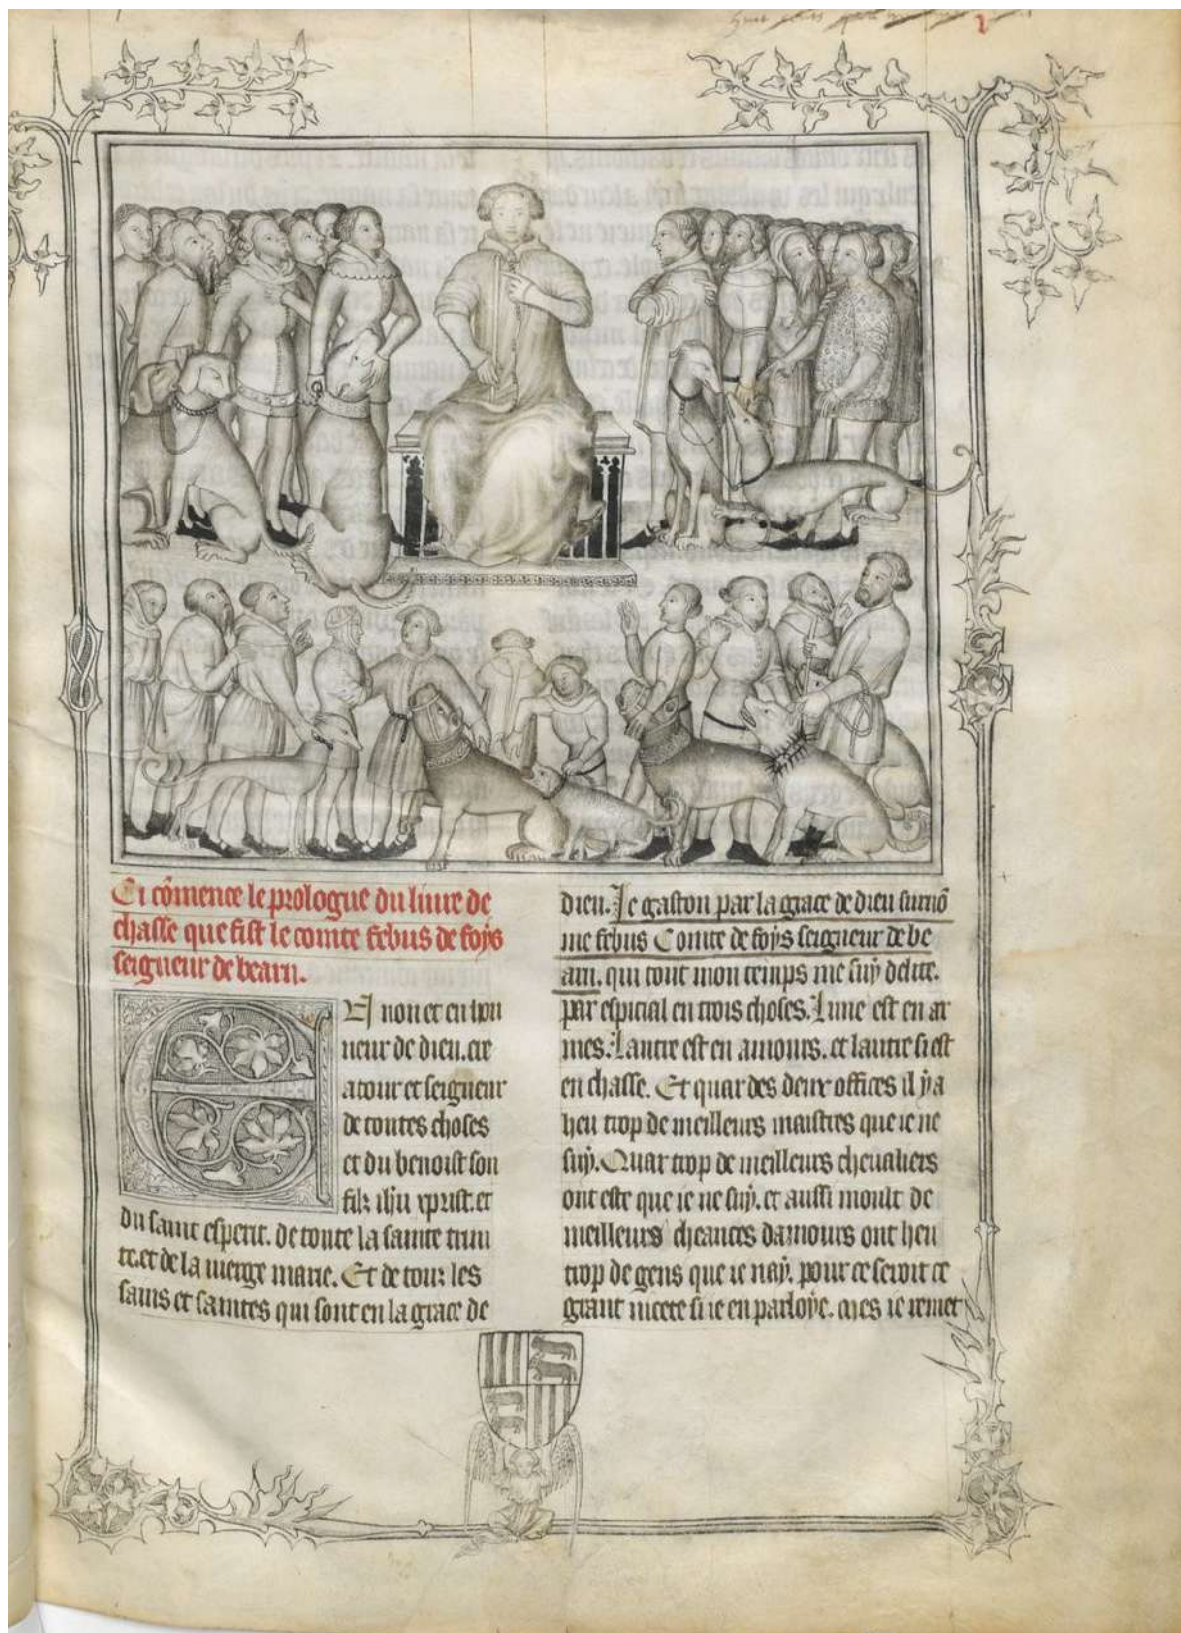 Ci cõmence le prologue du liure de
chasse que fist le comte febus de foÿs
seigneur de bearn.
El non et en hon
neur de dieu. cre
atour et seigneur
de toutes choses
et du benoist son
filz ihũ xprist. et
du saint esperit. de toute la sainte trini
te. et de la uierge marie. Et de touz les
sains et saintes qui sont en la grace de
dieu. Je gaston par la grace de dieu surnõ
me febus Comte de foÿs seigneur de be
arn. qui tout mon temps me suÿ delite.
par espicial en trois choses. Lune est en ar
mes. Lautre est en amours. et lautre si est
en chasse. Et quar des deux offices il ÿ a
heu trop de meilleurs maistres que ie ne
suÿ. Quar trop de meilleurs cheualiers
ont este que ie ne suÿ. et aussi moult de
meilleurs cheances damours ont heu
trop de gens que ie naÿ. pour ce seroit ce
grant nicete si ie en parloÿe. mes ie remet